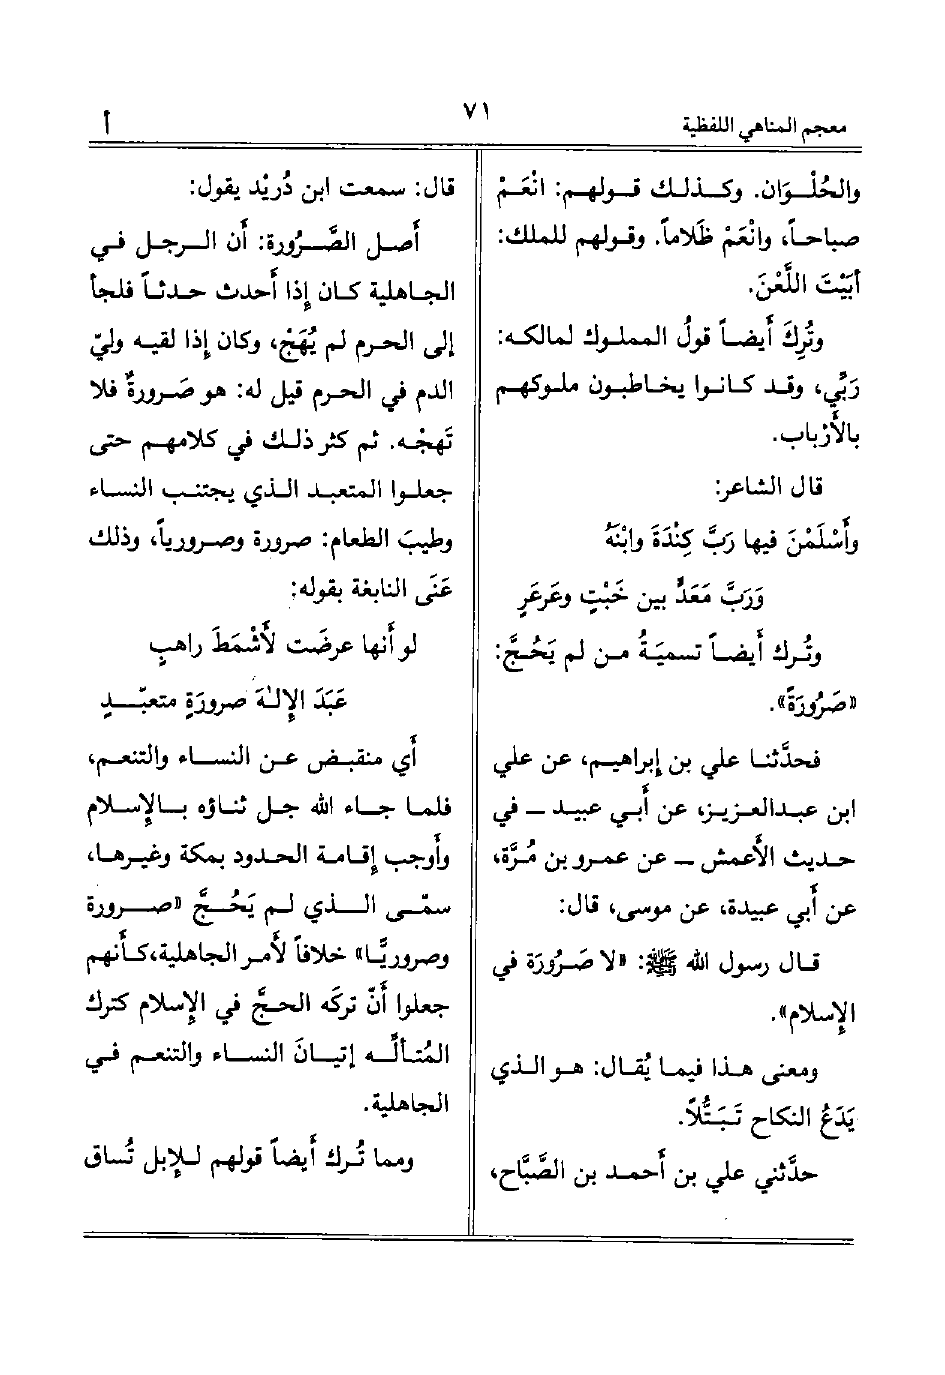 معجم المناهي اللفظية
٧١
أ
والحُلْوَان. وكذلك قولهم: انْعَمْ
صباحاً، وانْعَمْ ظَلاماً. وقولهم للملك:
أبَيْتَ اللَّعْنَ.
وتُرِكَ أيضاً قولُ المملوك لمالكه:
رَبِّي، وقد كانوا يخاطبون ملوكهم
بالأرْباب.
قال الشاعر:
وأَسْلَمْنَ فيها رَبَّ كِنْدَةَ وابْنَهُ
وَرَبَّ مَعَدٍّ بين خَبْتٍ وعَرعَرِ
وتُرك أيضاً تسميَةُ من لم يَحُجَّ:
«صَرُورَةً».
فحدَّثنا علي بن إبراهيم، عن علي
ابن عبدالعزيز، عن أبي عبيد ــ في
حديث الأعمش ــ عن عمرو بن مُرَّة،
عن أبي عبيدة، عن موسى، قال:
قال رسول الله ﷺ: «لا صَرُورَة في
الإسلام».
ومعنى هذا فيما يُقال: هو الذي
يَدَعُ النكاح تَبَتُّلاً.
حدَّثني علي بن أحمد بن الصَّبَّاح،
قال: سمعت ابن دُرَيْد يقول:
أصل الصَّرُورة: أن الرجل في
الجاهلية كان إذا أحدث حدثاً فلجأ
إلى الحرم لم يُهَجْ، وكان إذا لقيه وليّ
الدم في الحرم قيل له: هو صَرورةٌ فلا
تَهجْه. ثم كثر ذلك في كلامهم حتى
جعلوا المتعبد الذي يجتنب النساء
وطيبَ الطعام: صرورة وصرورياً، وذلك
عَنَى النابغة بقوله:
لو أنها عرضَت لأَشْمَطَ راهبٍ
عَبَدَ الإلهَ صرورَةٍ متعبّدٍ
أي منقبض عن النساء والتنعم،
فلما جاء الله جل ثناؤه بالإسلام
وأوجب إقامة الحدود بمكة وغيرها،
سمّى الذي لم يَحُجَّ «صرورة
وصروريًّا» خلافاً لأمر الجاهلية، كأنهم
جعلوا أنّ تركَه الحجَّ في الإسلام كترك
المُتألِّه إتيانَ النساء والتنعم في
الجاهلية.
ومما تُرك أيضاً قولهم للإبل تُساق